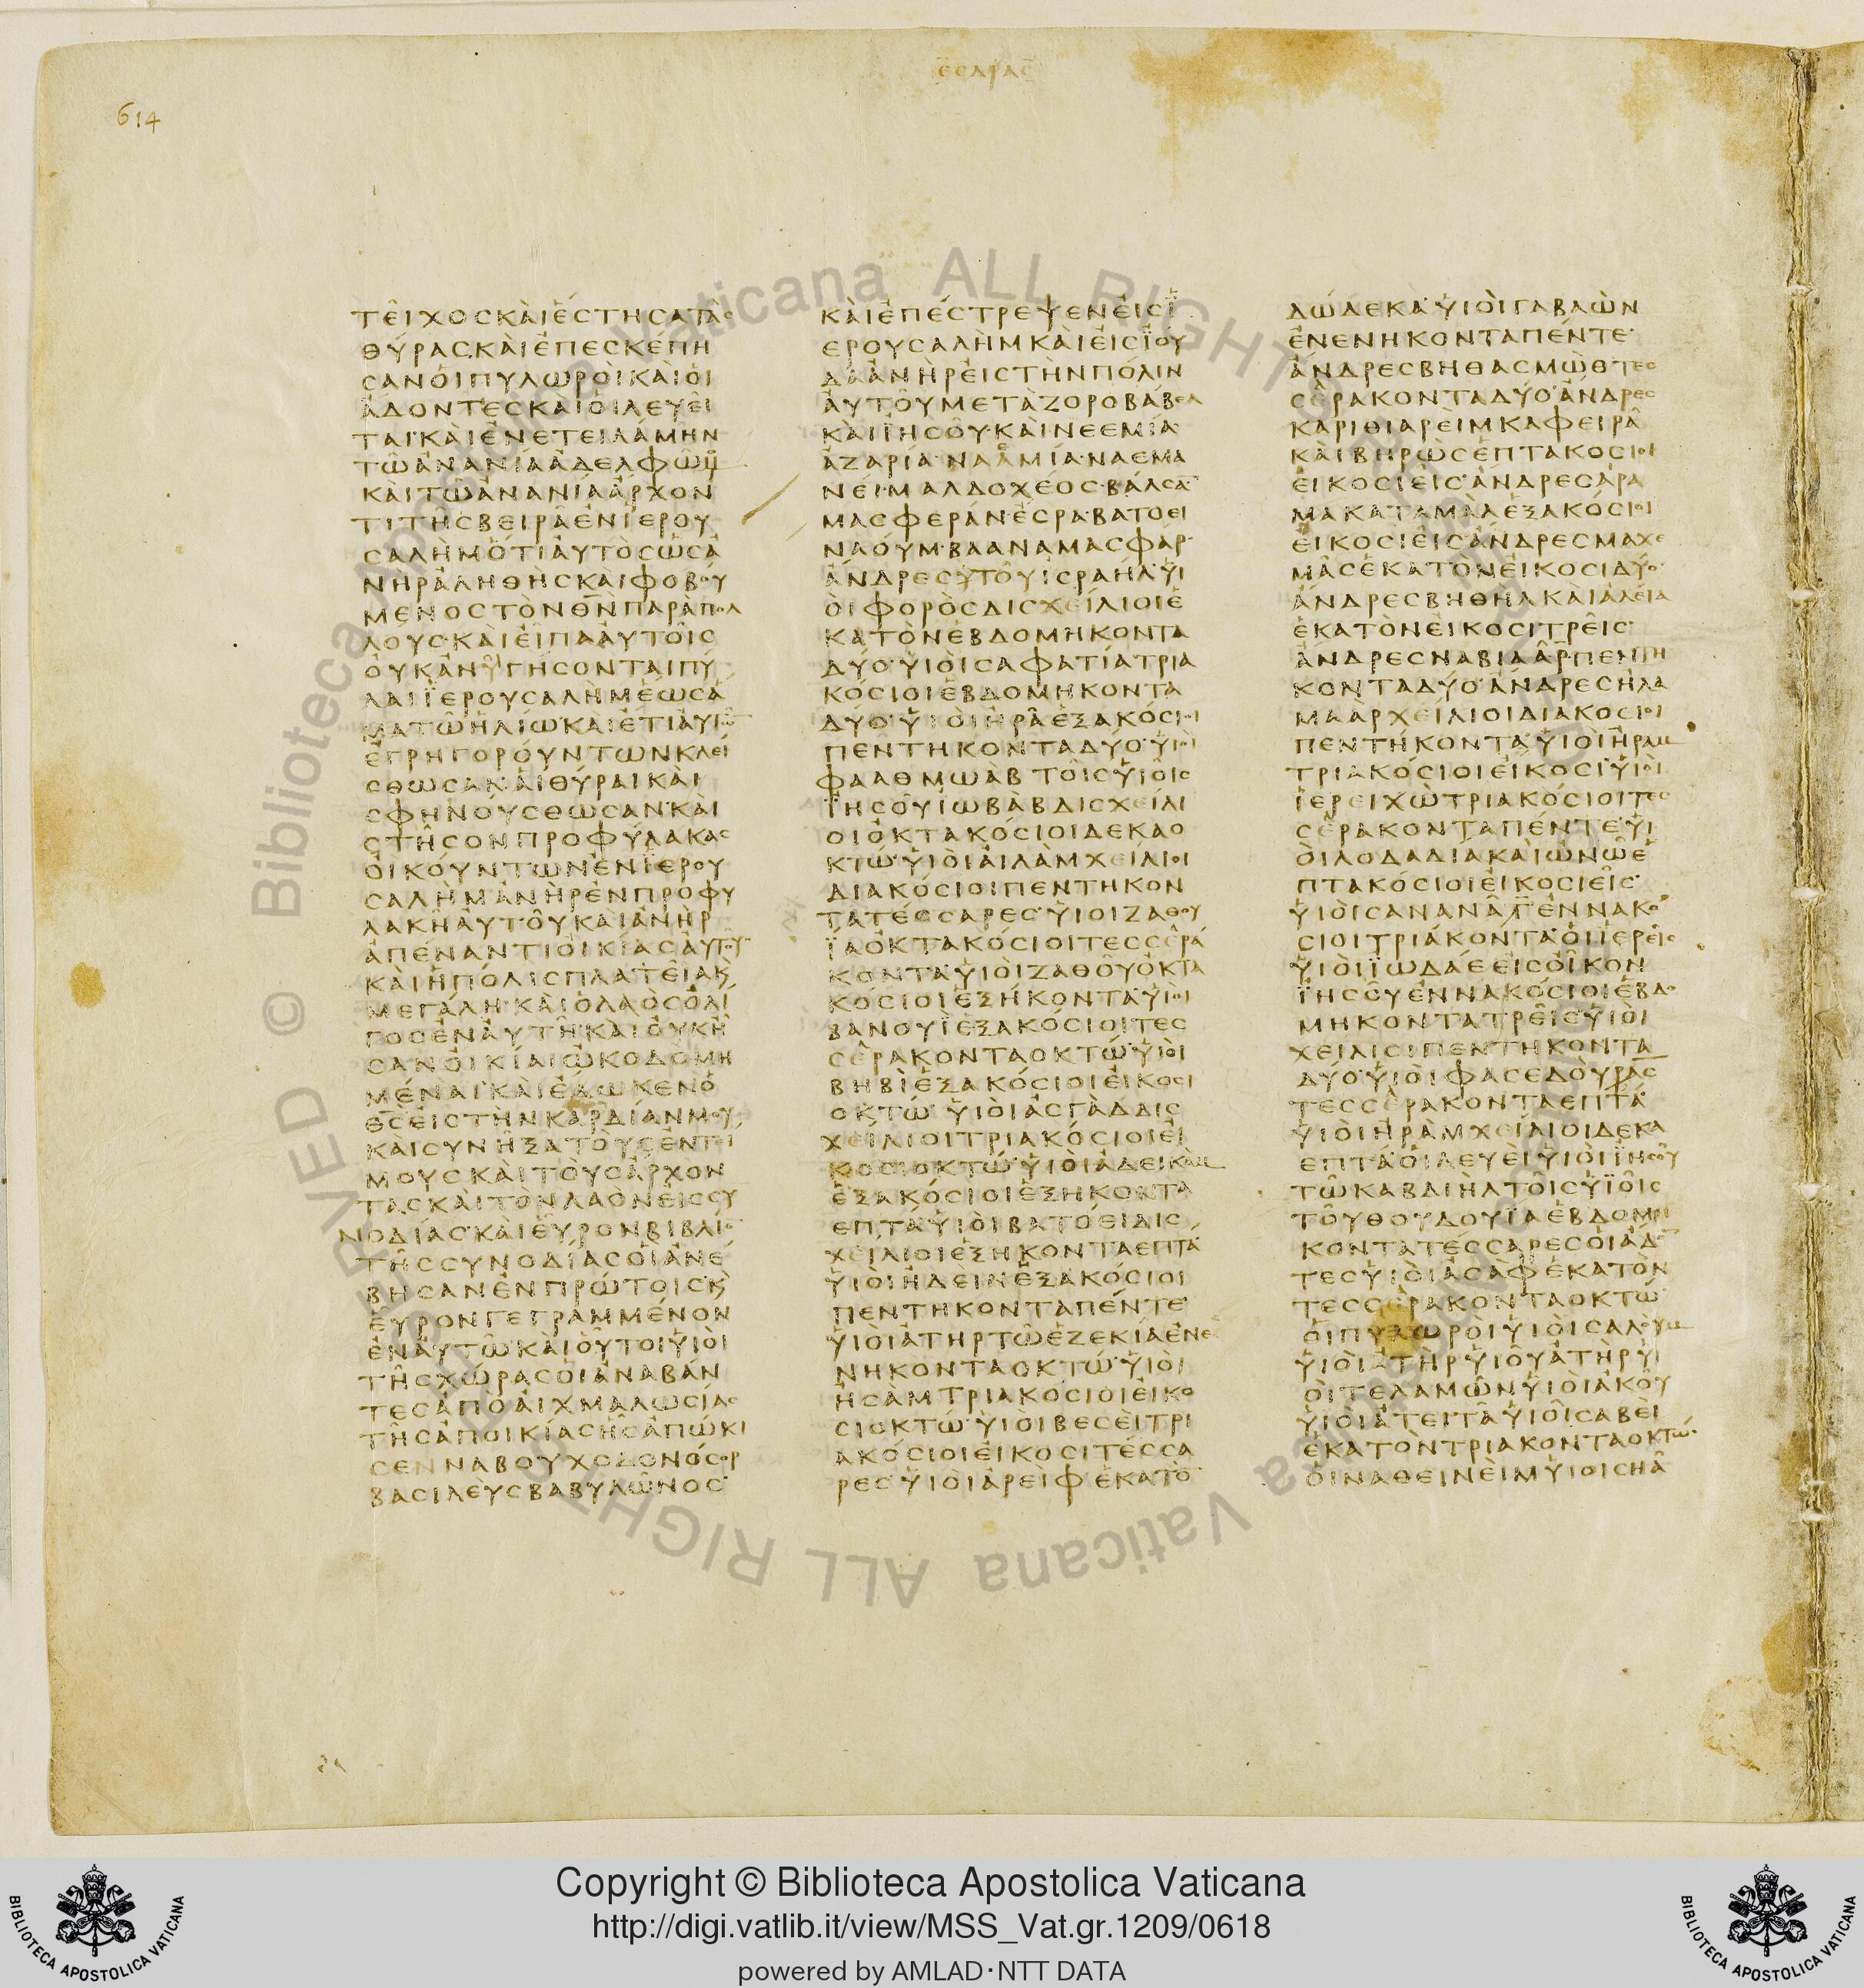 ΕΣΔΡΑΣ
614
ΤΕΙΧΟΣΚΑΙΕΣΤΗΣΑΤΑΣ
ΘΥΡΑΣΚΑΙΕΠΕΣΚΕΠΗ
ΣΑΝΟΙΠΥΛΩΡΟΙΚΑΙΟΙ
ΑΔΟΝΤΕΣΚΑΙΟΙΛΕΥΕΙ
ΤΑΙΚΑΙΕΝΕΤΕΙΛΑΜΗΝ
ΤΩΑΝΑΝΙΑΑΔΕΛΦΩΜ
ΚΑΙΤΩΑΝΑΝΙΑΑΡΧΟΝ
ΤΙΤΗΣΒΕΙΡΑΕΝΙΕΡΟΥ
ΣΑΛΗΜΟΤΙΑΥΤΟΣΩΣΑ
ΝΗΡΑΛΗΘΗΣΚΑΙΦΟΒΟΥ
ΜΕΝΟΣΤΟΝΘΝΠΑΡΑΠΟΛ
ΛΟΥΣΚΑΙΕΙΠΑΑΥΤΟΙΣ
ΟΥΚΑΝΥΓΗΣΟΝΤΑΙΠΥ
ΛΑΙΙΕΡΟΥΣΑΛΗΜΕΩΣΑ
ΜΑΤΩΗΛΙΩΚΑΙΕΤΙΑΥΤΩ
ΕΓΡΗΓΟΡΟΥΝΤΩΝΚΛΕΙ
ΣΘΩΣΑΝΑΙΘΥΡΑΙΚΑΙ
ΣΦΗΝΟΥΣΘΩΣΑΝΚΑΙ
ΣΤΗΣΟΝΠΡΟΦΥΛΑΚΑΣ
ΟΙΚΟΥΝΤΩΝΕΝΙΕΡΟΥ
ΣΑΛΗΜΑΝΗΡΕΝΠΡΟΦΥ
ΛΑΚΗΑΥΤΟΥΚΑΙΑΝΗΡ
ΑΠΕΝΑΝΤΙΟΙΚΙΑΣΑΥΤΟΥ
ΚΑΙΗΠΟΛΙΣΠΛΑΤΕΙΑΚ
ΜΕΓΑΛΗΚΑΙΟΛΑΟΣΟΛΙ
ΓΟΣΕΝΑΥΤΗΚΑΙΟΥΚΗ
ΣΑΝΟΙΚΙΑΙΩΚΟΔΟΜΗ
ΜΕΝΑΙΚΑΙΕΔΩΚΕΝΟ
ΘΣΕΙΣΤΗΝΚΑΡΔΙΑΝΜΟΥ
ΚΑΙΣΥΝΗΞΑΤΟΥΣΕΝΤΙ
ΜΟΥΣΚΑΙΤΟΥΣΑΡΧΟΝ
ΤΑΣΚΑΙΤΟΝΛΑΟΝΕΙΣΣΥ
ΝΟΔΙΑΣΚΑΙΕΥΡΟΝΒΙΒΛΙΟ
ΤΗΣΣΥΝΟΔΙΑΣΟΙΑΝΕ
ΒΗΣΑΝΕΝΠΡΩΤΟΙΣΚ
ΕΥΡΟΝΓΕΓΡΑΜΜΕΝΟΝ
ΕΝΑΥΤΩΚΑΙΟΥΤΟΙΥΙΟΙ
ΤΗΣΧΩΡΑΣΟΙΑΝΑΒΑΝ
ΤΕΣΑΠΟΑΙΧΜΑΛΩΣΙΑΣ
ΤΗΣΑΠΟΙΚΙΑΣΗΣΑΠΩΚΙ
ΣΕΝΝΑΒΟΥΧΟΔΟΝΟΣΟΡ
ΒΑΣΙΛΕΥΣΒΑΒΥΛΩΝΟΣ
ΚΑΙΕΠΕΣΤΡΕΨΕΝΕΙΣΙ
ΕΡΟΥΣΑΛΗΜΚΑΙΕΙΣΙΟΥ
ΔΑΑΝΗΡΕΙΣΤΗΝΠΟΛΙΝ
ΑΥΤΟΥΜΕΤΑΖΟΡΟΒΑΒΕΛ
ΚΑΙΙΗΣΟΥΚΑΙΝΕΕΜΙΑ
ΑΖΑΡΙΑΝΑΑΜΙΑΝΑΕΜΑ
ΝΕΙΜΑΛΔΟΧΕΟΣΒΑΛΣΑ
ΜΑΣΦΕΡΑΝΕΣΡΑΒΑΤΟΕΙ
ΝΑΟΥΜΒΑΑΝΑΜΑΣΦΑΡ
ΑΝΔΡΕΣΥΤΟΥΙΣΡΑΗΛΥΙ
ΟΙΦΟΡΟΣΔΙΣΧΕΙΛΙΟΙΕ
ΚΑΤΟΝΕΒΔΟΜΗΚΟΝΤΑ
ΔΥΟΥΙΟΙΣΑΦΑΤΙΑΤΡΙΑ
ΚΟΣΙΟΙΕΒΔΟΜΗΚΟΝΤΑ
ΔΥΟΥΙΟΙΗΡΑΕΞΑΚΟΣΙΟΙ
ΠΕΝΤΗΚΟΝΤΑΔΥΟΥΙΟΙ
ΦΑΑΘΜΩΑΒΤΟΙΣΥΙΟΙΣ
ΙΗΣΟΥΙΩΒΑΒΔΙΣΧΕΙΛΙ
ΟΙΟΚΤΑΚΟΣΙΟΙΔΕΚΑΟ
ΚΤΩΥΙΟΙΑΙΛΑΜΧΕΙΛΙΟΙ
ΔΙΑΚΟΣΙΟΙΠΕΝΤΗΚΟΝ
ΤΑΤΕΣΣΑΡΕΣΥΙΟΙΖΑΘΟΥ
ΙΑΟΚΤΑΚΟΣΙΟΙΤΕΣΣΕΡΑ
ΚΟΝΤΑΥΙΟΙΖΑΘΟΥΟΚΤΑ
ΚΟΣΙΟΙΕΞΗΚΟΝΤΑΥΙΟΙ
ΒΑΝΟΥΙΕΞΑΚΟΣΙΟΙΤΕΣ
ΣΕΡΑΚΟΝΤΑΟΚΤΩΥΙΟΙ
ΒΗΒΙΕΞΑΚΟΣΙΟΙΕΙΚΟΣΙ
ΟΚΤΩΥΙΟΙΑΣΓΑΔΔΙΣ
ΧΕΙΛΙΟΙΤΡΙΑΚΟΣΙΟΙΕΙ
ΚΟΣΙΟΚΤΩΥΙΟΙΑΔΕΙΚΑΜ
ΕΞΑΚΟΣΙΟΙΕΞΗΚΟΝΤΑ
ΕΠΤΑΥΙΟΙΒΑΤΟΕΙΔΙΣ
ΧΕΙΛΙΟΙΕΞΗΚΟΝΤΑΕΠΤΑ
ΥΙΟΙΗΔΕΙΝΕΞΑΚΟΣΙΟΙ
ΠΕΝΤΗΚΟΝΤΑΠΕΝΤΕ
ΥΙΟΙΑΤΗΡΤΩΕΖΕΚΙΑΕΝΕ
ΝΗΚΟΝΤΑΟΚΤΩΥΙΟΙ
ΗΣΑΜΤΡΙΑΚΟΣΙΟΙΕΙΚΟ
ΣΙΟΚΤΩΥΙΟΙΒΕΣΕΙΤΡΙ
ΑΚΟΣΙΟΙΕΙΚΟΣΙΤΕΣΣΑ
ΡΕΣΥΙΟΙΑΡΕΙΦΕΚΑΤΟ
ΔΩΔΕΚΑΥΙΟΙΓΑΒΑΩΝ
ΕΝΕΝΗΚΟΝΤΑΠΕΝΤΕ
ΑΝΔΡΕΣΒΗΘΑΣΜΩΘΤΕΣ
ΣΕΡΑΚΟΝΤΑΔΥΟΑΝΔΡΕΣ
ΚΑΡΙΘΙΑΡΕΙΜΚΑΦΕΙΡΑ
ΚΑΙΒΗΡΩΣΕΠΤΑΚΟΣΙΟΙ
ΕΙΚΟΣΙΕΙΣΑΝΔΡΕΣΑΡΑ
ΜΑΚΑΤΑΜΑΛΕΞΑΚΟΣΙΟΙ
ΕΙΚΟΣΙΕΙΣΑΝΔΡΕΣΜΑΧΕ
ΜΑΣΕΚΑΤΟΝΕΙΚΟΣΙΔΥΟ
ΑΝΔΡΕΣΒΗΘΗΛΚΑΙΑΛΕΙΑ
ΕΚΑΤΟΝΕΙΚΟΣΙΤΡΕΙΣ
ΑΝΔΡΕΣΝΑΒΙΑΑΡΠΕΝΤΗ
ΚΟΝΤΑΔΥΟΑΝΔΡΕΣΗΛΑ
ΜΑΑΡΧΕΙΛΙΟΙΔΙΑΚΟΣΙΟΙ
ΠΕΝΤΗΚΟΝΤΑΥΙΟΙΗΡΑΜ
ΤΡΙΑΚΟΣΙΟΙΕΙΚΟΣΙΥΙΟΙ
ΙΕΡΕΙΧΩΤΡΙΑΚΟΣΙΟΙΤΕΣ
ΣΕΡΑΚΟΝΤΑΠΕΝΤΕΥΙ
ΟΙΛΟΔΑΔΙΑΚΑΙΩΝΩΕ
ΠΤΑΚΟΣΙΟΙΕΙΚΟΣΙΕΙΣ
ΥΙΟΙΣΑΝΑΝΑΤΕΝΝΑΚΟ
ΣΙΟΙΤΡΙΑΚΟΝΤΑΟΙΙΕΡΕΙΣ
ΥΙΟΙΙΩΔΑΕΕΙΣΟΙΚΟΝ
ΙΗΣΟΥΕΝΝΑΚΟΣΙΟΙΕΒΔΟ
ΜΗΚΟΝΤΑΤΡΕΙΣΥΙΟΙ
ΧΕΙΛΙΟΙΠΕΝΤΗΚΟΝΤΑ
ΔΥΟΥΙΟΙΦΑΣΕΔΟΥΡΑΣ
ΤΕΣΣΕΡΑΚΟΝΤΑΕΠΤΑ
ΥΙΟΙΗΡΑΜΧΕΙΛΙΟΙΔΕΚΑ
ΕΠΤΑΟΙΛΕΥΕΙΥΙΟΙΙΗΣΟΥ
ΤΩΚΑΒΔΙΗΛΤΟΙΣΥΙΟΙΣ
ΤΟΥΘΟΥΔΟΥΙΑΕΒΔΟΜΗ
ΚΟΝΤΑΤΕΣΣΑΡΕΣΟΙΑΔΟ
ΤΕΣΥΙΟΙΑΣΑΦΕΚΑΤΟΝ
ΤΕΣΣΕΡΑΚΟΝΤΑΟΚΤΩ
ΟΙΠΥΛΩΡΟΙΥΙΟΙΣΑΛΟΥΜ
ΥΙΟΙΑΤΗΡΥΙΟΥΑΤΗΡΥΙ
ΟΙΤΕΛΑΜΩΝΥΙΟΙΑΚΟΥ
ΥΙΟΙΑΤΕΙΤΑΥΙΟΙΣΑΒΕΙ
ΕΚΑΤΟΝΤΡΙΑΚΟΝΤΑΟΚΤΩ
ΟΙΝΑΘΕΙΝΕΙΜΥΙΟΙΣΗΑ
© Biblioteca Apostolica Vaticana ALL RIGHTS RESERVED
Copyright © Biblioteca Apostolica Vaticana
http://digi.vatlib.it/view/MSS_Vat.gr.1209/0618
powered by AMLAD·NTT DATA
BIBLIOTECA APOSTOLICA VATICANA
BIBLIOTECA APOSTOLICA VATICANA